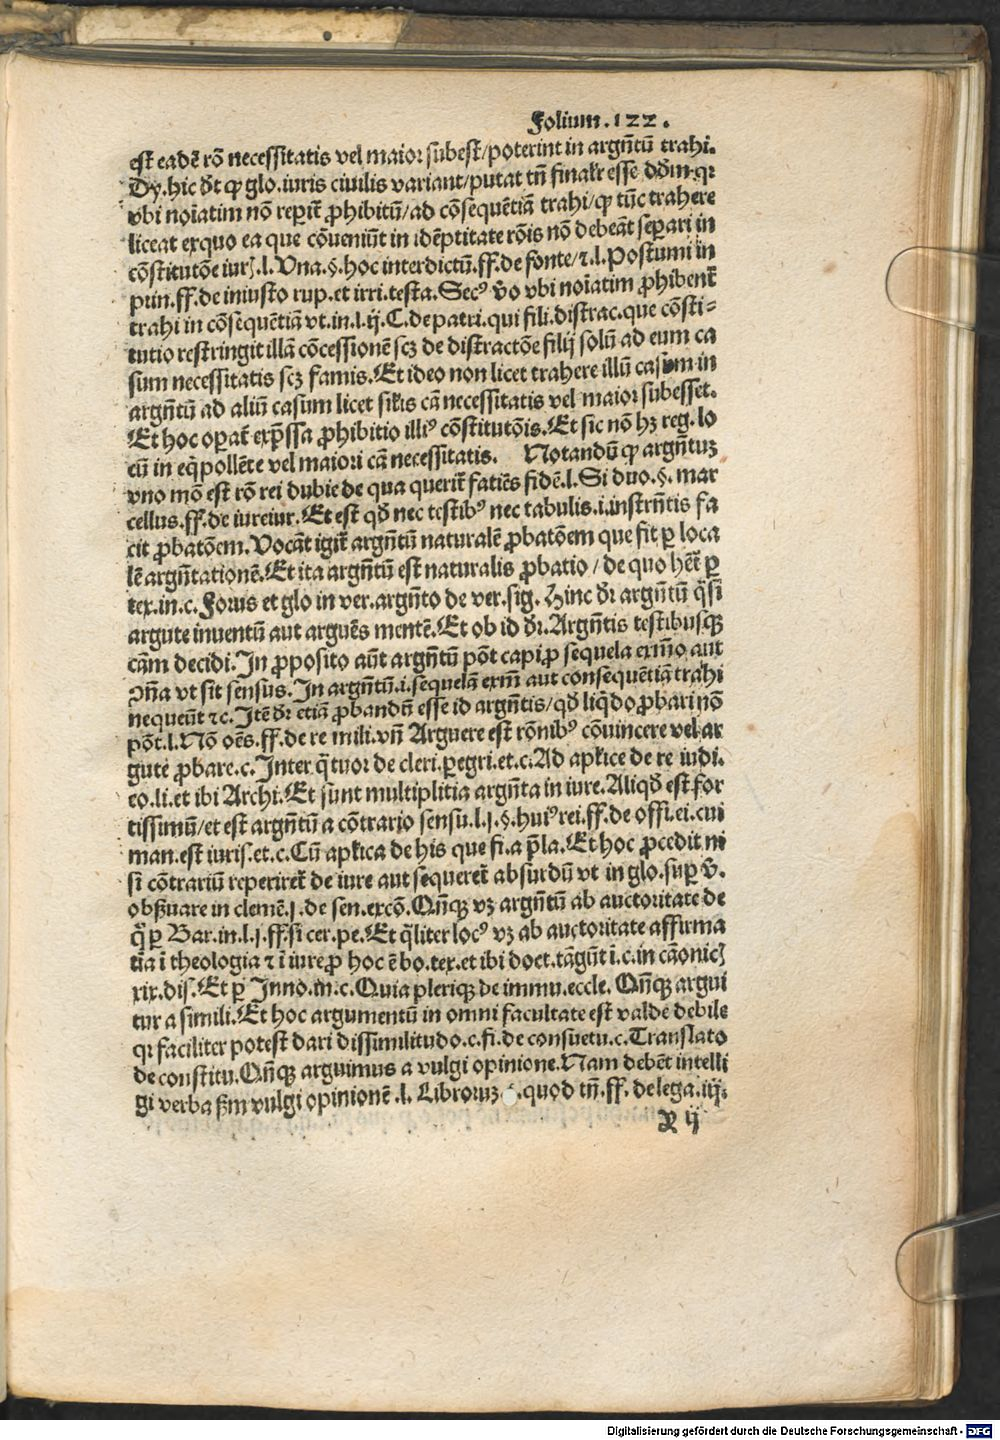 Folium.122.
est eadē rō necessitatis vel maior subest/poterint in argn̄tū trahi.
Dy.hic d̄t ꝙ glo.iuris ciuilis variant/putat tn̄ finalr̄ esse dd̄m.qꝛ
vbi noīatim nō reperit̄ ꝓhibitū/ad cōsequētiā trahi/ꝙ tūc trahere
liceat exquo ea que cōueniūt in idēptitate rōis nō debeāt separi in
cōstitutōe iurꝭ.l.Una.§.hoc interdictū.ff.de fonte/⁊.l.Postumi in
prin.ff.de iniusto rup.et irri.testa.Secꝰ v̄o vbi noīatim ꝓhibent̄
trahi in cōsequētiā vt.in.l.ij.C.de patri.qui fili.distrac.que cōsti-
tutio restringit illā cōcessionē scꝫ de distractōe filij solū ad eum ca
sum necessitatis scꝫ famis.Et ideo non licet trahere illū casum in
argn̄tū ad aliū casum licet sil̄is cā necessitatis vel maior subesset.
Et hoc opat̄ exp̄ssa ꝓhibitio illiꝰ cōstitutōis.Et sic nō hꝫ reg.lo
cū in eq̄pollēte vel maiori cā necessitatis. Notandū ꝙ argn̄tuꝫ
vno mō est rō rei dubie de qua querit̄ faciēs fidē.l.Si duo.§.mar
cellus.ff.de iureiur.Et est qd̄ nec testibꝰ nec tabulis.i.instrn̄tis fa
cit ꝓbatōem.Vocāt igit̄ argn̄tū naturalē ꝓbatōem que fit ꝑ loca
lē argn̄tationē.Et ita argn̄tū est naturalis ꝓbatio/de quo hēt̄ ꝑ
tex.in.c.Forus et glo in ver.argn̄to de ver.sig.Hinc dr̄ argn̄tū q̄si
argute inuentū aut arguēs mentē.Et ob id dr̄.Argn̄tis testibusqꝫ
cām decidi.In ꝓposito aūt argn̄tū pōt capi ꝓ sequela exm̄o aut
ꝯn̄a vt sit sensus.In argn̄tū.i.sequelā exm̄ aut consequētiā trahi
nequeūt ⁊c.Itē dr̄ etiā ꝓbandū esse id argn̄tis/qd̄ liq̄do ꝓbari nō
pōt.l.Nō oēs.ff.de re mili.vn̄ Arguere est rōnibꝰ cōuincere vel ar
gute ꝓbare.c.Inter q̄tuor de cleri.peregri.et.c.Ad apl̄ice de re iudi.
eo.li.et ibi Archi.Et sunt multiplitia argn̄ta in iure.Aliqd̄ est for
tissimū/et est argn̄tū a cōtrario sensu.l.j.§.huiꝰ rei.ff.de offi.ei.cui
man.est iurisf.et.c.Cū apl̄ica de his que fi.a p̄la.Et hoc ꝓcedit ni
si cōtrariū reperiret̄ de iure aut sequeret̄ absurdū vt in glo.sup v̄.
obẜuare in clemē.j.de sen.excō.Qn̄qꝫ vꝫ argn̄tū ab auctoritate de
q̄ ꝑ Bar.in.l.j.ff.si cer.pe.Et q̄liter locꝰ vꝫ ab auctoritate affirma
tia ī theologia ⁊ ī iure ꝓ hoc ē bo.tex.et ibi doct.tāgūt ī.c.in cāonicꝭ
xix.dis.Et ꝑ Inno.in.c.Quia pleriqꝫ de immu.eccle.Qn̄qꝫ argui
tur a simili.Et hoc argumentū in omni facultate est valde debile
qꝛ faciliter potest dari dissimilitudo.c.fi.de consuetu.c.Translato
de constitu.Qn̄qꝫ arguimus a vulgi opinione.Nam debēt intelli
gi verba ẜm vulgi opinionē.l.Libroruꝫ.§.quod tn̄.ff.de lega.iij.
ij
Digitalisierung gefördert durch die Deutsche Forschungsgemeinschaft - DFG